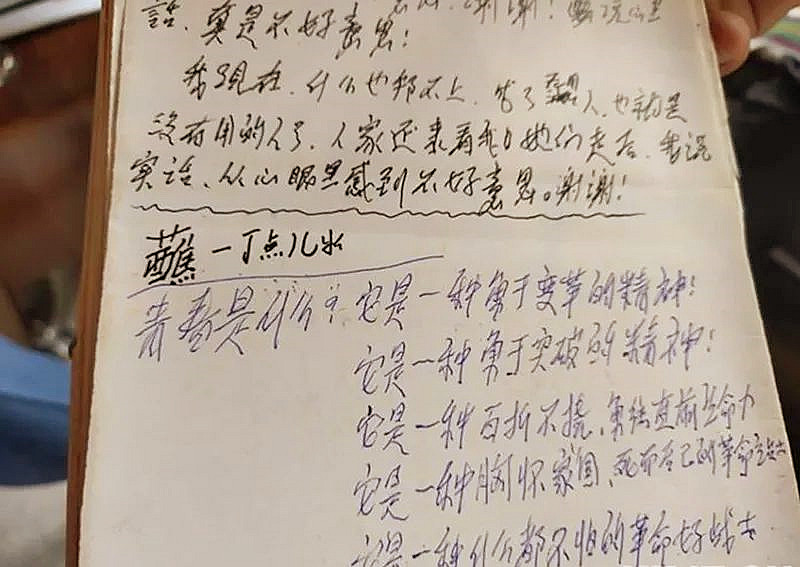 谢谢!
話、真是不好意思!
我现在,什么也帮不上,成了 人,也就是
没有用的人了,人家还来看我,她们走后,我说
实话、从心眼里感到不好意思。谢谢!
蘸一丁点儿水
青春是什么?它是一种勇于变革的精神!
它是一种勇于突破的精神!
它是一种百折不挠、勇往直前 命力
它是一种胸怀家国、死而后已的革命
它是一种什么都不怕的革命好战士